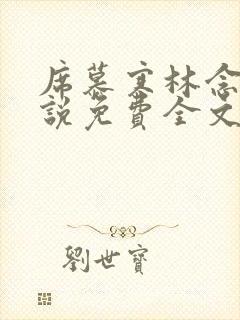 席慕寒林念
說免費全文
劉世寶